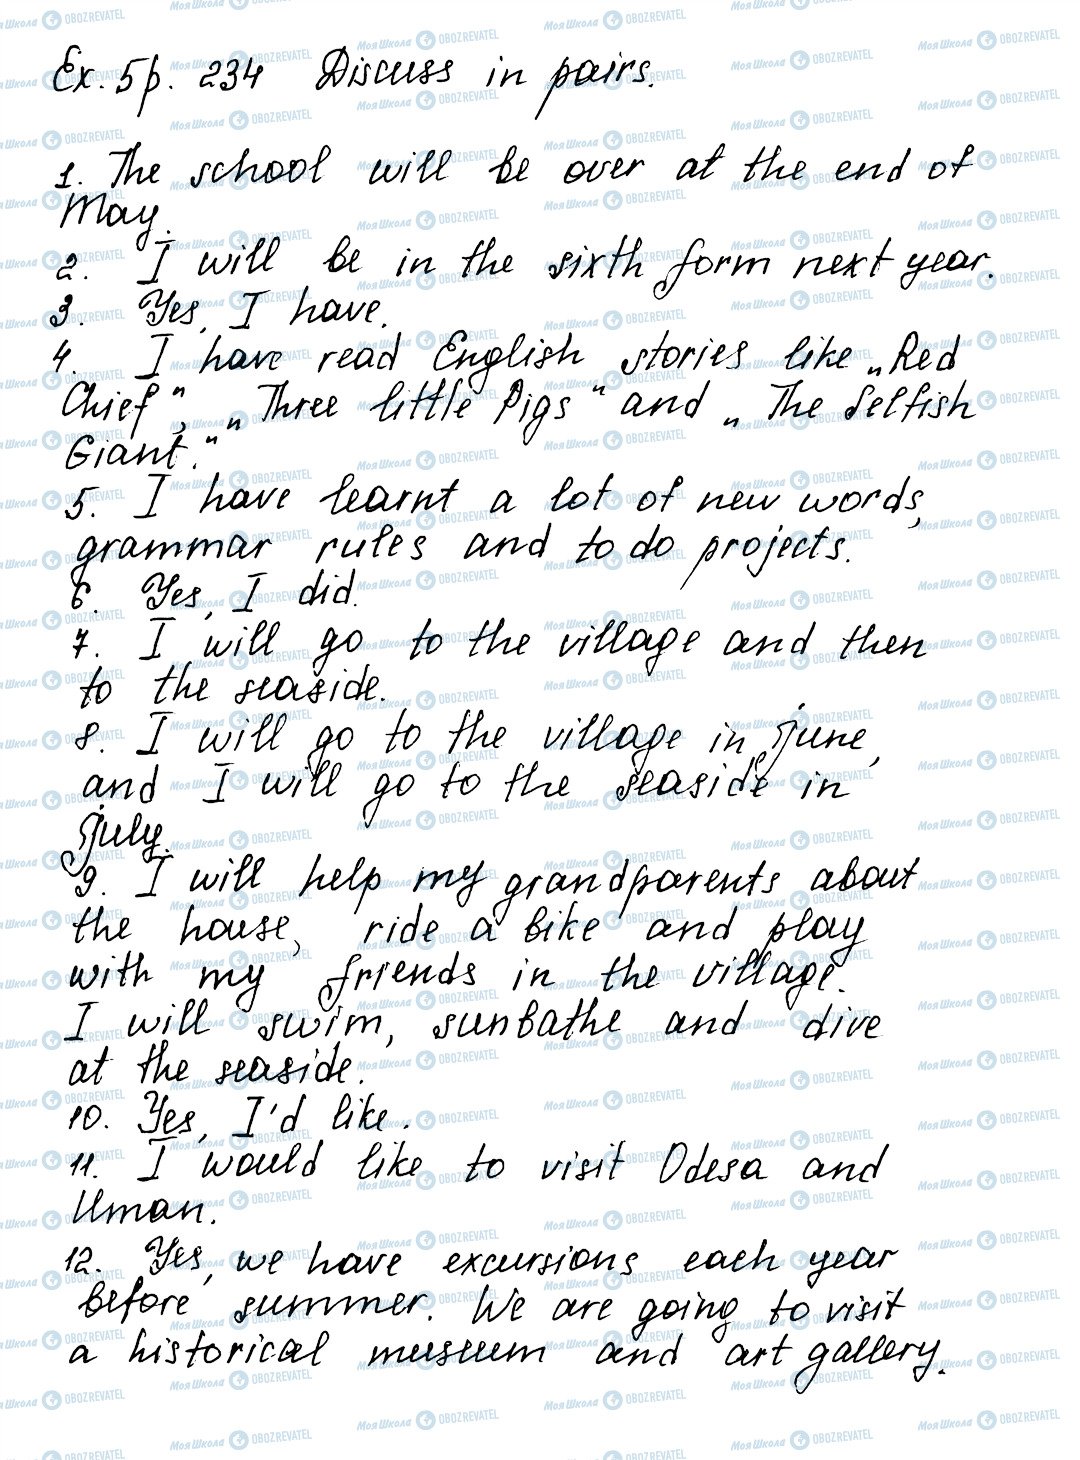 Ex. 5 p. 234 Discuss in pairs.
1. The school will be over at the end of
May.
2. I will be in the sixth form next year.
3. Yes, I have.
4. I have read English stories like „Red
Chief", „Three little Pigs" and „The Selfish
Giant."
5. I have learnt a lot of new words,
grammar rules and to do projects.
6. Yes, I did.
7. I will go to the village and then
to the seaside.
8. I will go to the village in June,
and I will go to the seaside in
July.
9. I will help my grandparents about
the house, ride a bike and play
with my friends in the village.
I will swim, sunbathe and dive
at the seaside.
10. Yes, I'd like.
11. I would like to visit Odesa and
Uman.
12. Yes, we have excursions each year
before summer. We are going to visit
a historical museum and art gallery.
Моя Школа OBOZREVATEL